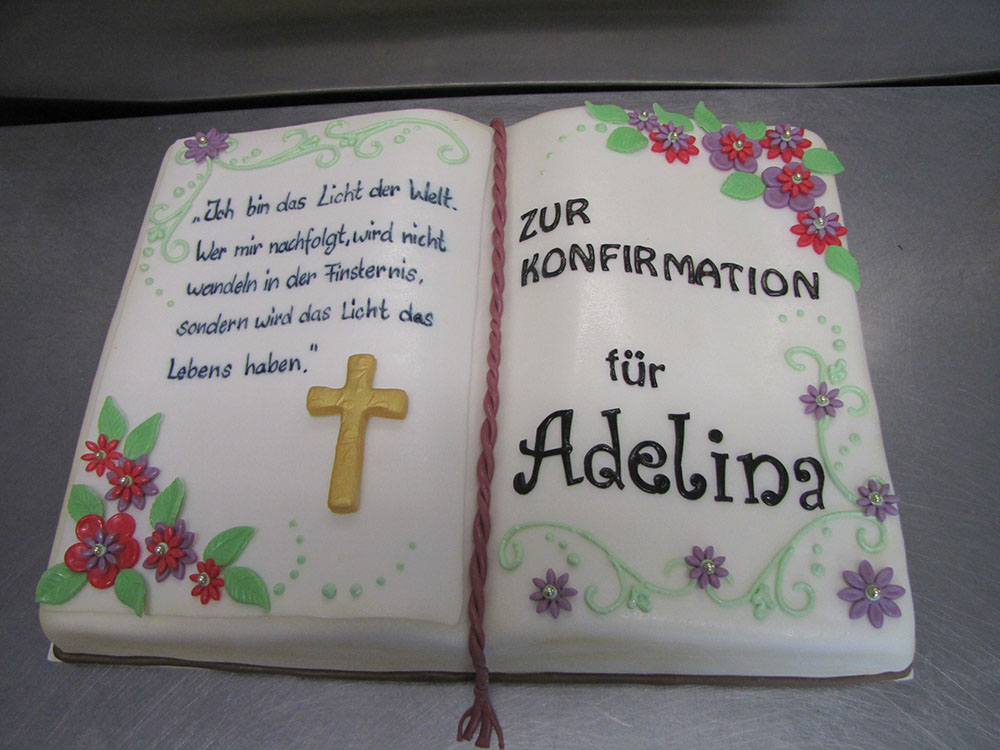 „Ich bin das Licht der Welt.
Wer mir nachfolgt, wird nicht
wandeln in der Finsternis,
sondern wird das Licht des
Lebens haben."
ZUR
KONFIRMATION
für
Adelina